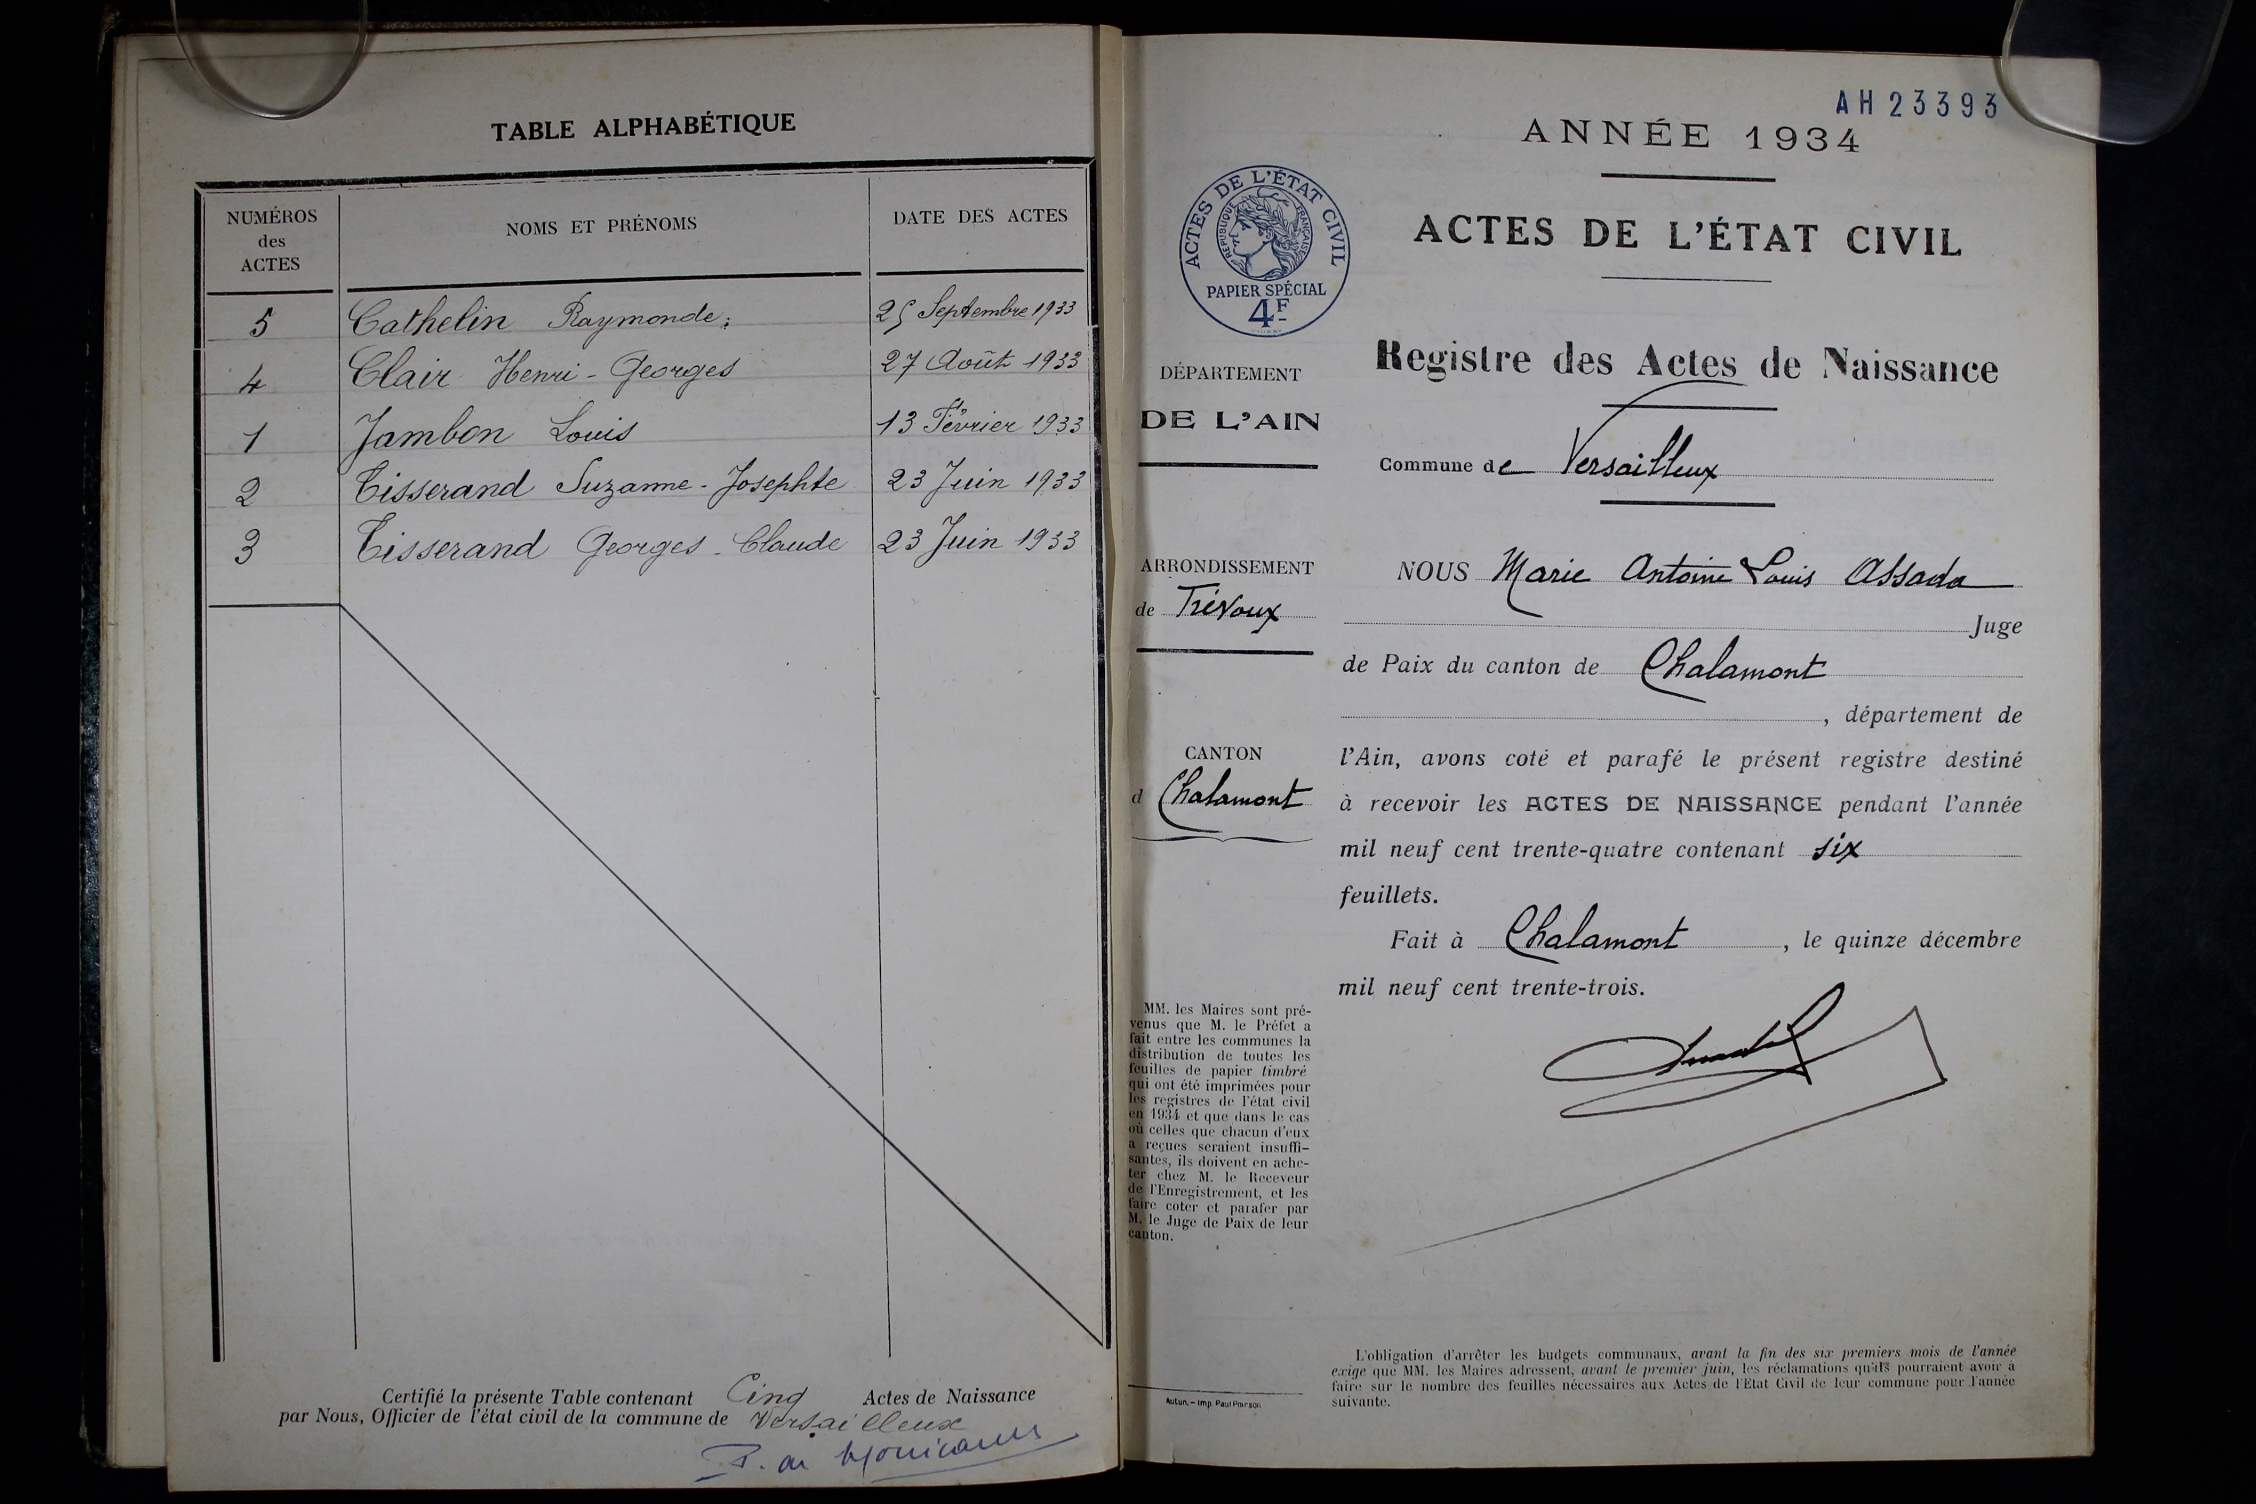 TABLE ALPHABÉTIQUE
NUMÉROS
des
ACTES
NOMS ET PRÉNOMS
DATE DES ACTES
5 Cathelin Raymonde. 25 Septembre 1933
4 Clair Henri-Georges 27 Août 1933
1 Jambon Louis 13 Février 1933
2 Tisserand Suzanne-Josephte 23 Juin 1933
3 Tisserand Georges-Claude 23 Juin 1933
Certifié la présente Table contenant Cinq Actes de Naissance
par Nous, Officier de l'état civil de la commune de Versailleux
AH 23393
ANNÉE 1934
ACTES DE L'ÉTAT CIVIL
RÉPUBLIQUE FRANÇAISE
PAPIER SPÉCIAL
4F
ACTES DE L'ÉTAT CIVIL
Registre des Actes de Naissance
DÉPARTEMENT
DE L'AIN
Commune de Versailleux
ARRONDISSEMENT
de Trévoux
CANTON
d Chalamont
NOUS Marie Antoine Louis Assada
Juge
de Paix du canton de Chalamont
, département de
l'Ain, avons coté et parafé le présent registre destiné
à recevoir les ACTES DE NAISSANCE pendant l'année
mil neuf cent trente-quatre contenant six
feuillets.
Fait à Chalamont, le quinze décembre
mil neuf cent trente-trois.
MM. les Maires sont pré-
venus que M. le Préfet a
fait entre les communes la
distribution de toutes les
feuilles de papier timbré
qui ont été imprimées pour
les registres de l'état civil
en 1934 et que dans le cas
où celles que chacun d'eux
a reçues seraient insuffi-
santes, ils doivent en ache-
ter chez M. le Receveur
de l'Enregistrement, et les
faire coter et parafer par
M. le Juge de Paix de leur
canton.
Autun. - Imp. Paul
L'obligation d'arrêter les budgets communaux, avant la fin des six premiers mois de l'année
exige que MM. les Maires adressent, avant le premier juin, les réclamations qu'ils pourraient avoir à
faire sur le nombre des feuilles nécessaires aux Actes de l'Etat Civil de leur commune pour l'année
suivante.